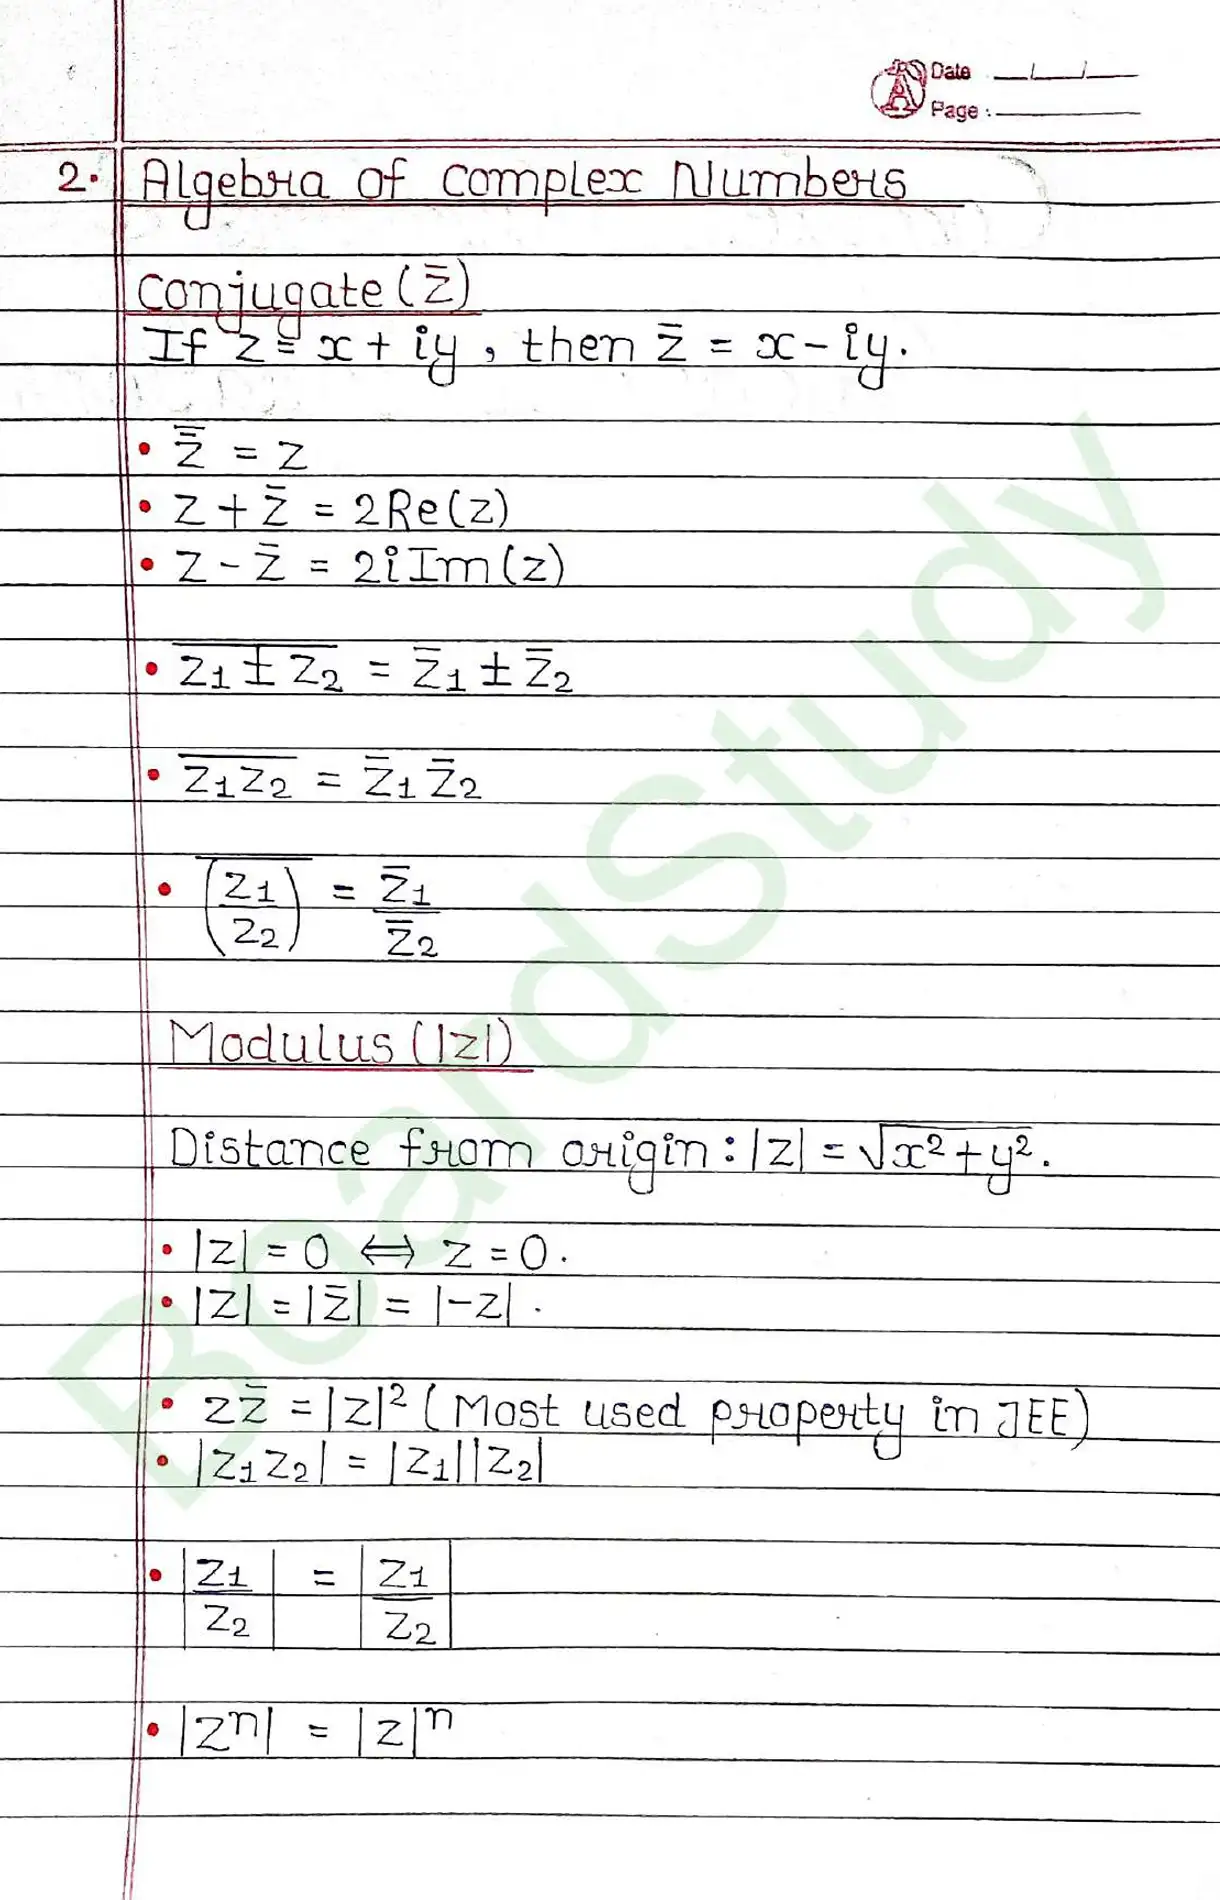 Date
Page :
2. Algebra of Complex Numbers
Conjugate (z̄)
If z = x + iy, then z̄ = x - iy.
• z̿ = z
• z + z̄ = 2Re(z)
• z - z̄ = 2i Im(z)
• \overline{z₁ ± z₂} = z̄₁ ± z̄₂
• \overline{z₁z₂} = z̄₁ z̄₂
• \overline{(z₁/z₂)} = z̄₁/z̄₂
Modulus (|z|)
Distance from origin : |z| = √(x² + y²).
• |z| = 0 ⟺ z = 0.
• |z| = |z̄| = |-z|.
• zz̄ = |z|² (Most used property in JEE)
• |z₁z₂| = |z₁||z₂|
• |z₁/z₂| = |z₁/z₂|
• |zⁿ| = |z|ⁿ
BoardStudy